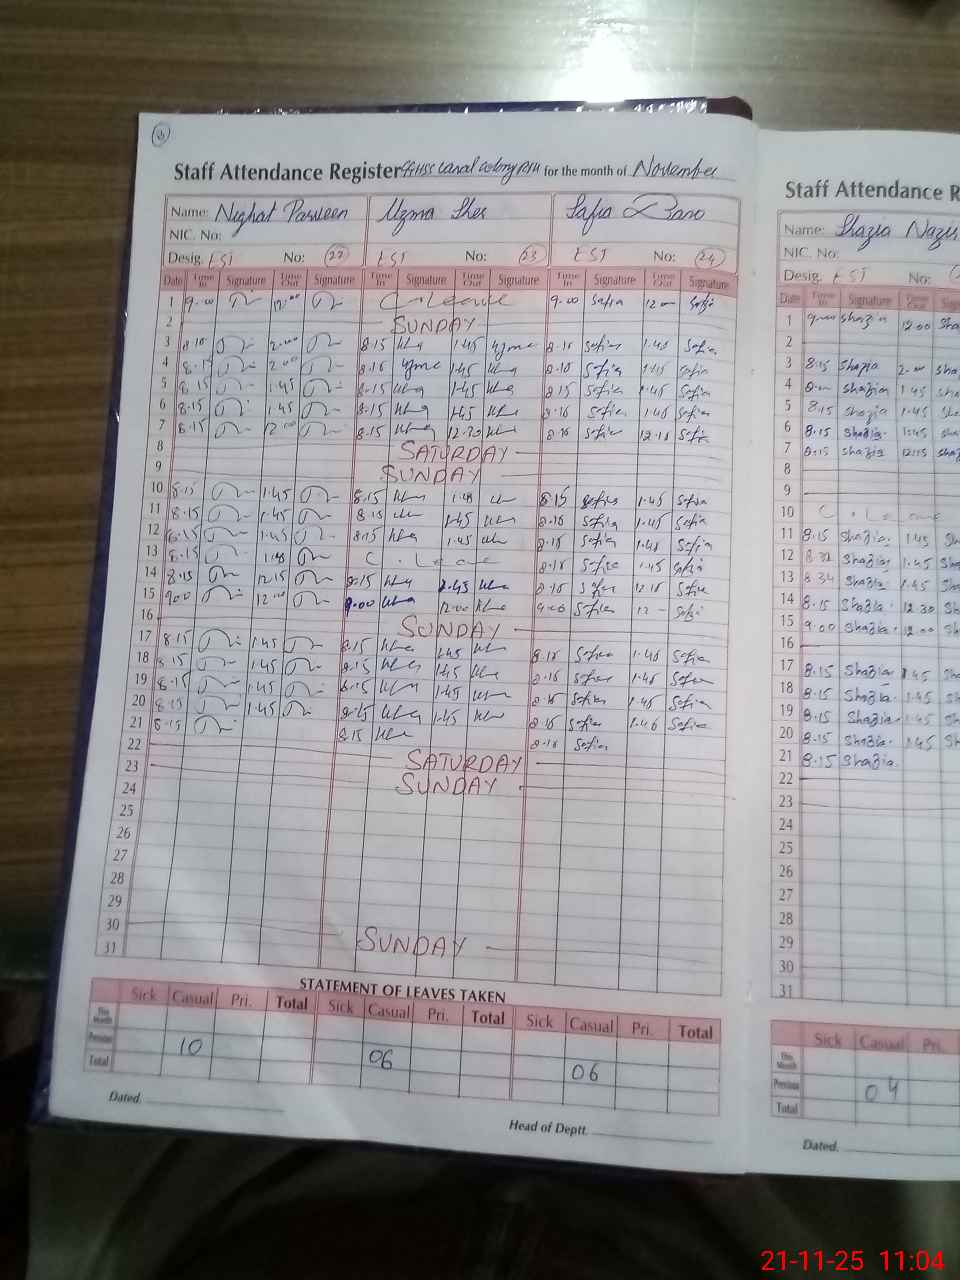 Staff Attendance Register GGHSS Canal Colony for the month of November
Name: Nighat Parveen Uzma Sher Safia Bano
NIC. No:
Desig. EST No: 22 EST No: 23 EST No: 24
Date Time In Signature Time Out Signature Time In Signature Time Out Signature Time In Signature Time Out Signature
1 9.00 12.00 C. Leave 9.00 Safia 12.00 Safia
2 SUNDAY
3 8.15 2.00 8.15 1.45 Uzma 8.15 Safia 1.45 Safia
4 8.15 2.00 8.15 Uzma 1.45 8.15 Safia 1.45 Safia
5 8.15 1.45 8.15 1.45 8.15 Safia 1.45 Safia
6 8.15 1.45 8.15 1.45 8.15 Safia 1.45 Safia
7 8.15 12.00 8.15 12.30 8.15 Safia 12.15 Safia
8 SATURDAY
9 SUNDAY
10 8.15 1.45 8.15 1.45 8.15 Safia 1.45 Safia
11 8.15 1.45 8.15 1.45 8.15 Safia 1.45 Safia
12 8.15 1.45 8.15 1.45 8.15 Safia 1.45 Safia
13 8.15 1.45 C. Leave 8.15 Safia 1.45 Safia
14 8.15 12.15 8.15 1.45 8.15 Safia 12.15 Safia
15 9.00 12.00 9.00 12.00 9.00 Safia 12 Safia
16 SUNDAY
17 8.15 1.45 8.15 1.45 8.15 Safia 1.45 Safia
18 8.15 1.45 8.15 1.45 8.15 Safia 1.45 Safia
19 8.15 1.45 8.15 1.45 8.15 Safia 1.45 Safia
20 8.15 1.45 8.15 1.45 8.15 Safia 1.45 Safia
21 8.15 8.15 8.15 Safia
22 SATURDAY
23 SUNDAY
24
25
26
27
28
29
30 SUNDAY
31
STATEMENT OF LEAVES TAKEN
Sick Casual Pri. Total Sick Casual Pri. Total Sick Casual Pri. Total
This Month
Previous 10 06 06
Total
Dated.
Head of Deptt.
Staff Attendance R
Name: Shazia Nazir
NIC. No:
Desig. EST No:
Date Time In Signature Time Out Signature
1 9.00 Shazia 12.00 Sha
2
3 8.15 Shazia 2.00 sha
4 Shazia 1.45 sha
5 8.15 Shazia 1.45 Sha
6 8.15 Shazia. 1.45 sha
7 8.15 Shazia 12.15 sha
8
9
10 C. Leave
11 8.15 Shazia. 1.45 Sh
12 8.32 Shazia. 1.45 S
13 8.34 Shazia 1.45 S
14 8.15 Shazia. 12.30 Sh
15 9.00 Shazia. 12.00 Sh
16
17 8.15 Shazia 1.45 Sh
18 8.15 Shazia. 1.45 S
19 8.15 Shazia. 1.45 S
20 8.15 Shazia. 1.45 Sh
21 8.15 Shazia.
22
23
24
25
26
27
28
29
30
31
Sick Casual Pri.
This Month
Previous 04
Total
Dated.
21-11-25 11:04